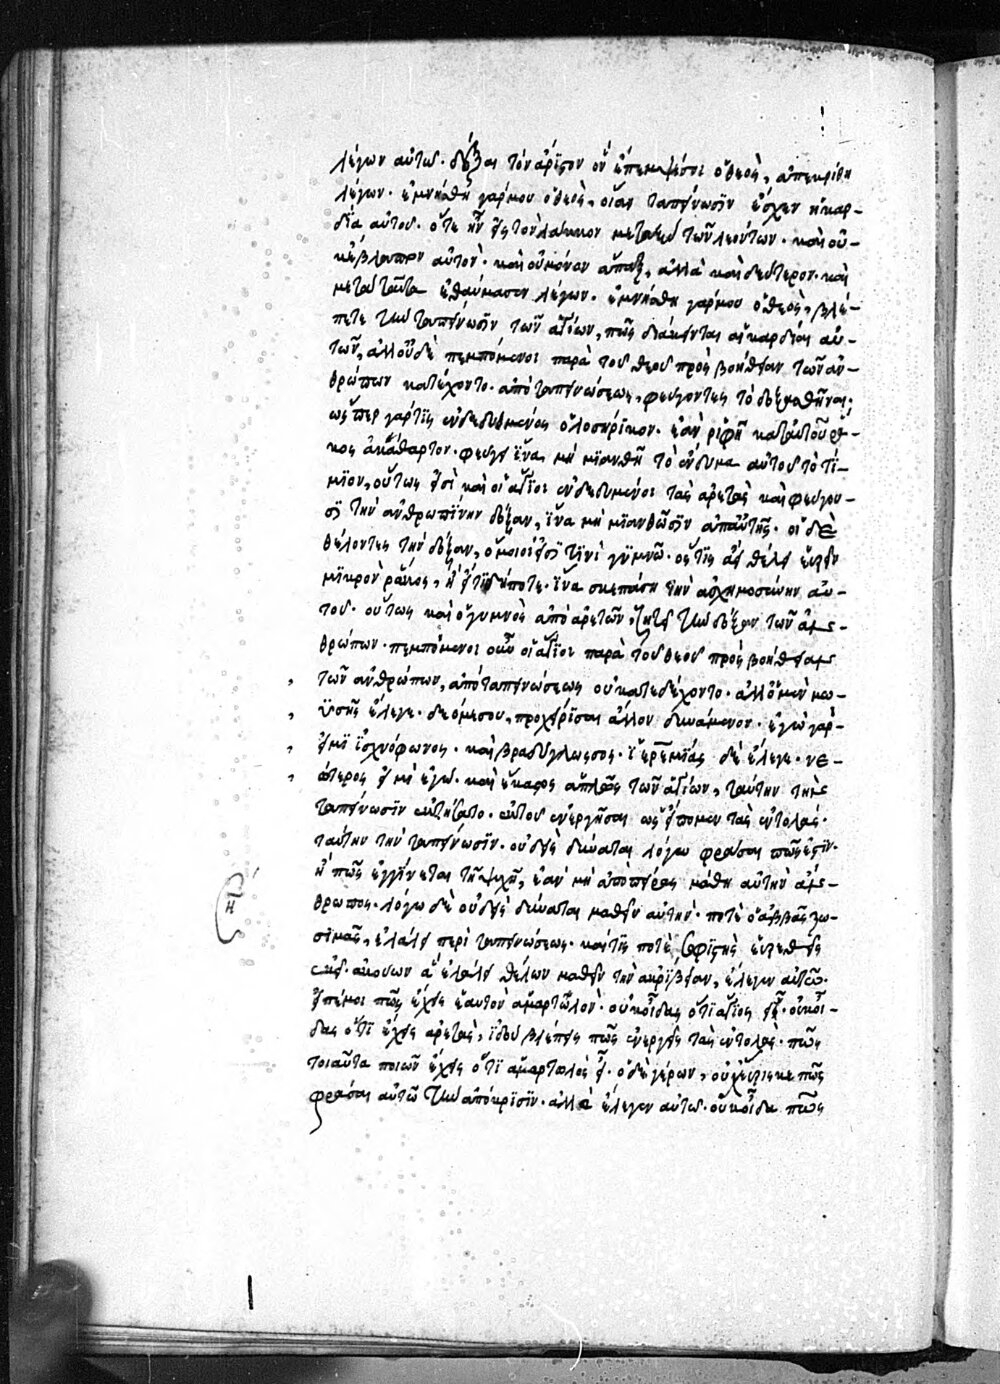 λέγων αὐτῶ· δέξαι τὸν ἄριστον ὃν ἔπεμψέ σοι ὁ θεὸς, ἀπεκρίθη
λέγων· ἐμνήσθη γάρ μου ὁ θεὸς, οἵαν ταπείνωσιν ἔσχεν ἡ καρ-
δία αὐτοῦ· ὅτε ἦν εἰς τὸν λάκκον μεταξὺ τῶν λεόντων· καὶ οὐ-
κ ἔβλαψαν αὐτὸν· καὶ οὐ μόνον ἅπαξ, ἀλλὰ καὶ δεύτερον· καὶ
μετὰ ταῦτα ἐθαύμασεν λέγων· ἐμνήσθη γάρ μου ὁ θεὸς, βλέ-
πετε τὴν ταπείνωσιν τῶν ἁγίων, πῶς διάκεινται αἱ καρδίαι αὐ-
τῶν, ἀλλ' οὐδὲ πεμπόμενοι παρὰ τοῦ θεοῦ πρὸς βοήθειαν τῶν ἀν-
θρώπων κατείχοντο· ἀπὸ ταπεινώσεως, φεύγοντες τὸ δοξασθῆναι;
ὥσπερ γάρ τις ἐνδεδυμένος ὁλοσήρικον· ἐὰν ριφῆ κατ' αὐτοῦ ῥά-
κος ἀκάθαρτον· φεύγει ἵνα μὴ μιανθῆ τὸ ἔνδυμα αὐτοῦ τὸ τί-
μιον, οὕτως εἰσὶ καὶ οἱ ἅγιοι ἐνδεδυμένοι τὰς ἀρετὰς καὶ φεύγου-
σι τὴν ἀνθρωπίνην δόξαν, ἵνα μὴ μιανθῶσιν ἀπ' αὐτῆς· οἱ δὲ
θέλοντες τὴν δόξαν, ὅμοιοι εἰσὶ τινὶ γυμνῶ· ὅστις ἀεὶ θέλει εὑρεῖν
μικρὸν ῥάκος, ἢ ὁτιδήποτε· ἵνα σκεπάση τὴν ἀσχημοσύνην αὐ-
τοῦ· οὕτως καὶ ὁ γυμνὸς ἀπὸ ἀρετῶν, ζητεῖ τὴν δόξαν τῶν ἀν-
θρώπων· πεμπόμενοι οὖν οἱ ἅγιοι παρὰ τοῦ θεοῦ πρὸς βοήθειαν
τῶν ἀνθρώπων, ἀπὸ ταπεινώσεως οὐ κατεδέχοντο· ἀλλ' ὁ μὲν μω-
ϋσῆς ἔλεγε· δέομαί σου, προχείρισαι ἄλλον δυνάμενον· ἐγὼ γὰρ
εἰμὶ ἰσχνόφωνος· καὶ βραδύγλωσσος· ὁ ἱερεμίας δὲ ἔλεγε· νε-
ώτερος εἰμὶ ἐγώ· καὶ ἕκαστος ἁπλῶς τῶν ἁγίων, ταύτην τὴν
ταπείνωσιν ἐκτήσατο· ἐκ τοῦ ἐνεργῆσαι ὡς εἴπομεν τὰς ἐντολάς·
ταύτην τὴν ταπείνωσιν· οὐδεὶς δύναται λόγω φράσαι πῶς ἐστὶν·
ἢ πῶς ἐγγίνεται τῆ ψυχῆ, ἐὰν μὴ ἀπὸ πείρας μάθη αὐτὴν ἄν-
θρωπος· λόγω δὲ οὐδεὶς δύναται μαθεῖν αὐτήν· ποτὲ ὁ ἀββᾶς ζω-
σιμᾶς, ἐλάλει περὶ ταπεινώσεως· καί τις ποτὲ σοφιστὴς εὑρεθεὶς
ἐκεῖ· ἀκούων ἃ ἐλάλει θέλων μαθεῖν τὴν ἀκρίβειαν, ἔλεγεν αὐτῶ·
εἰπέ μοι πῶς ἔχεις ἑαυτὸν ἁμαρτωλὸν· οὐκ οἶδας ὅτι ἅγιος εἶ· οὐκ οἶ-
δας ὅτι ἔχεις ἀρετὰς, ἰδοὺ βλέπεις πῶς ἐνεργεῖς τὰς ἐντολάς· πῶς
τοιαῦτα ποιῶν ἔχεις ὅτι ἁμαρτωλὸς εἶ· ὁ δὲ γέρων, οὐχ εὕρισκε πῶς
φράσαι αὐτῶ τὴν ἀπόκρισιν· ἀλλὰ ἔλεγεν αὐτῶ· οὐκ οἶδα πῶς
η